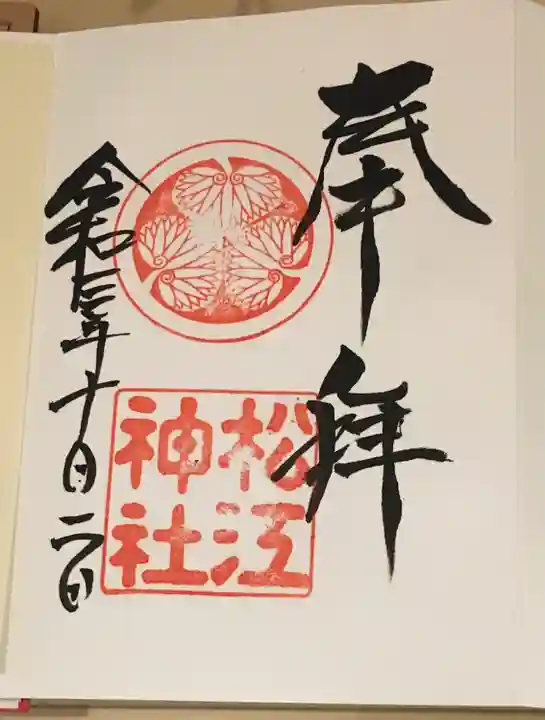 奉拝
松江
神社
令和六年十月二日